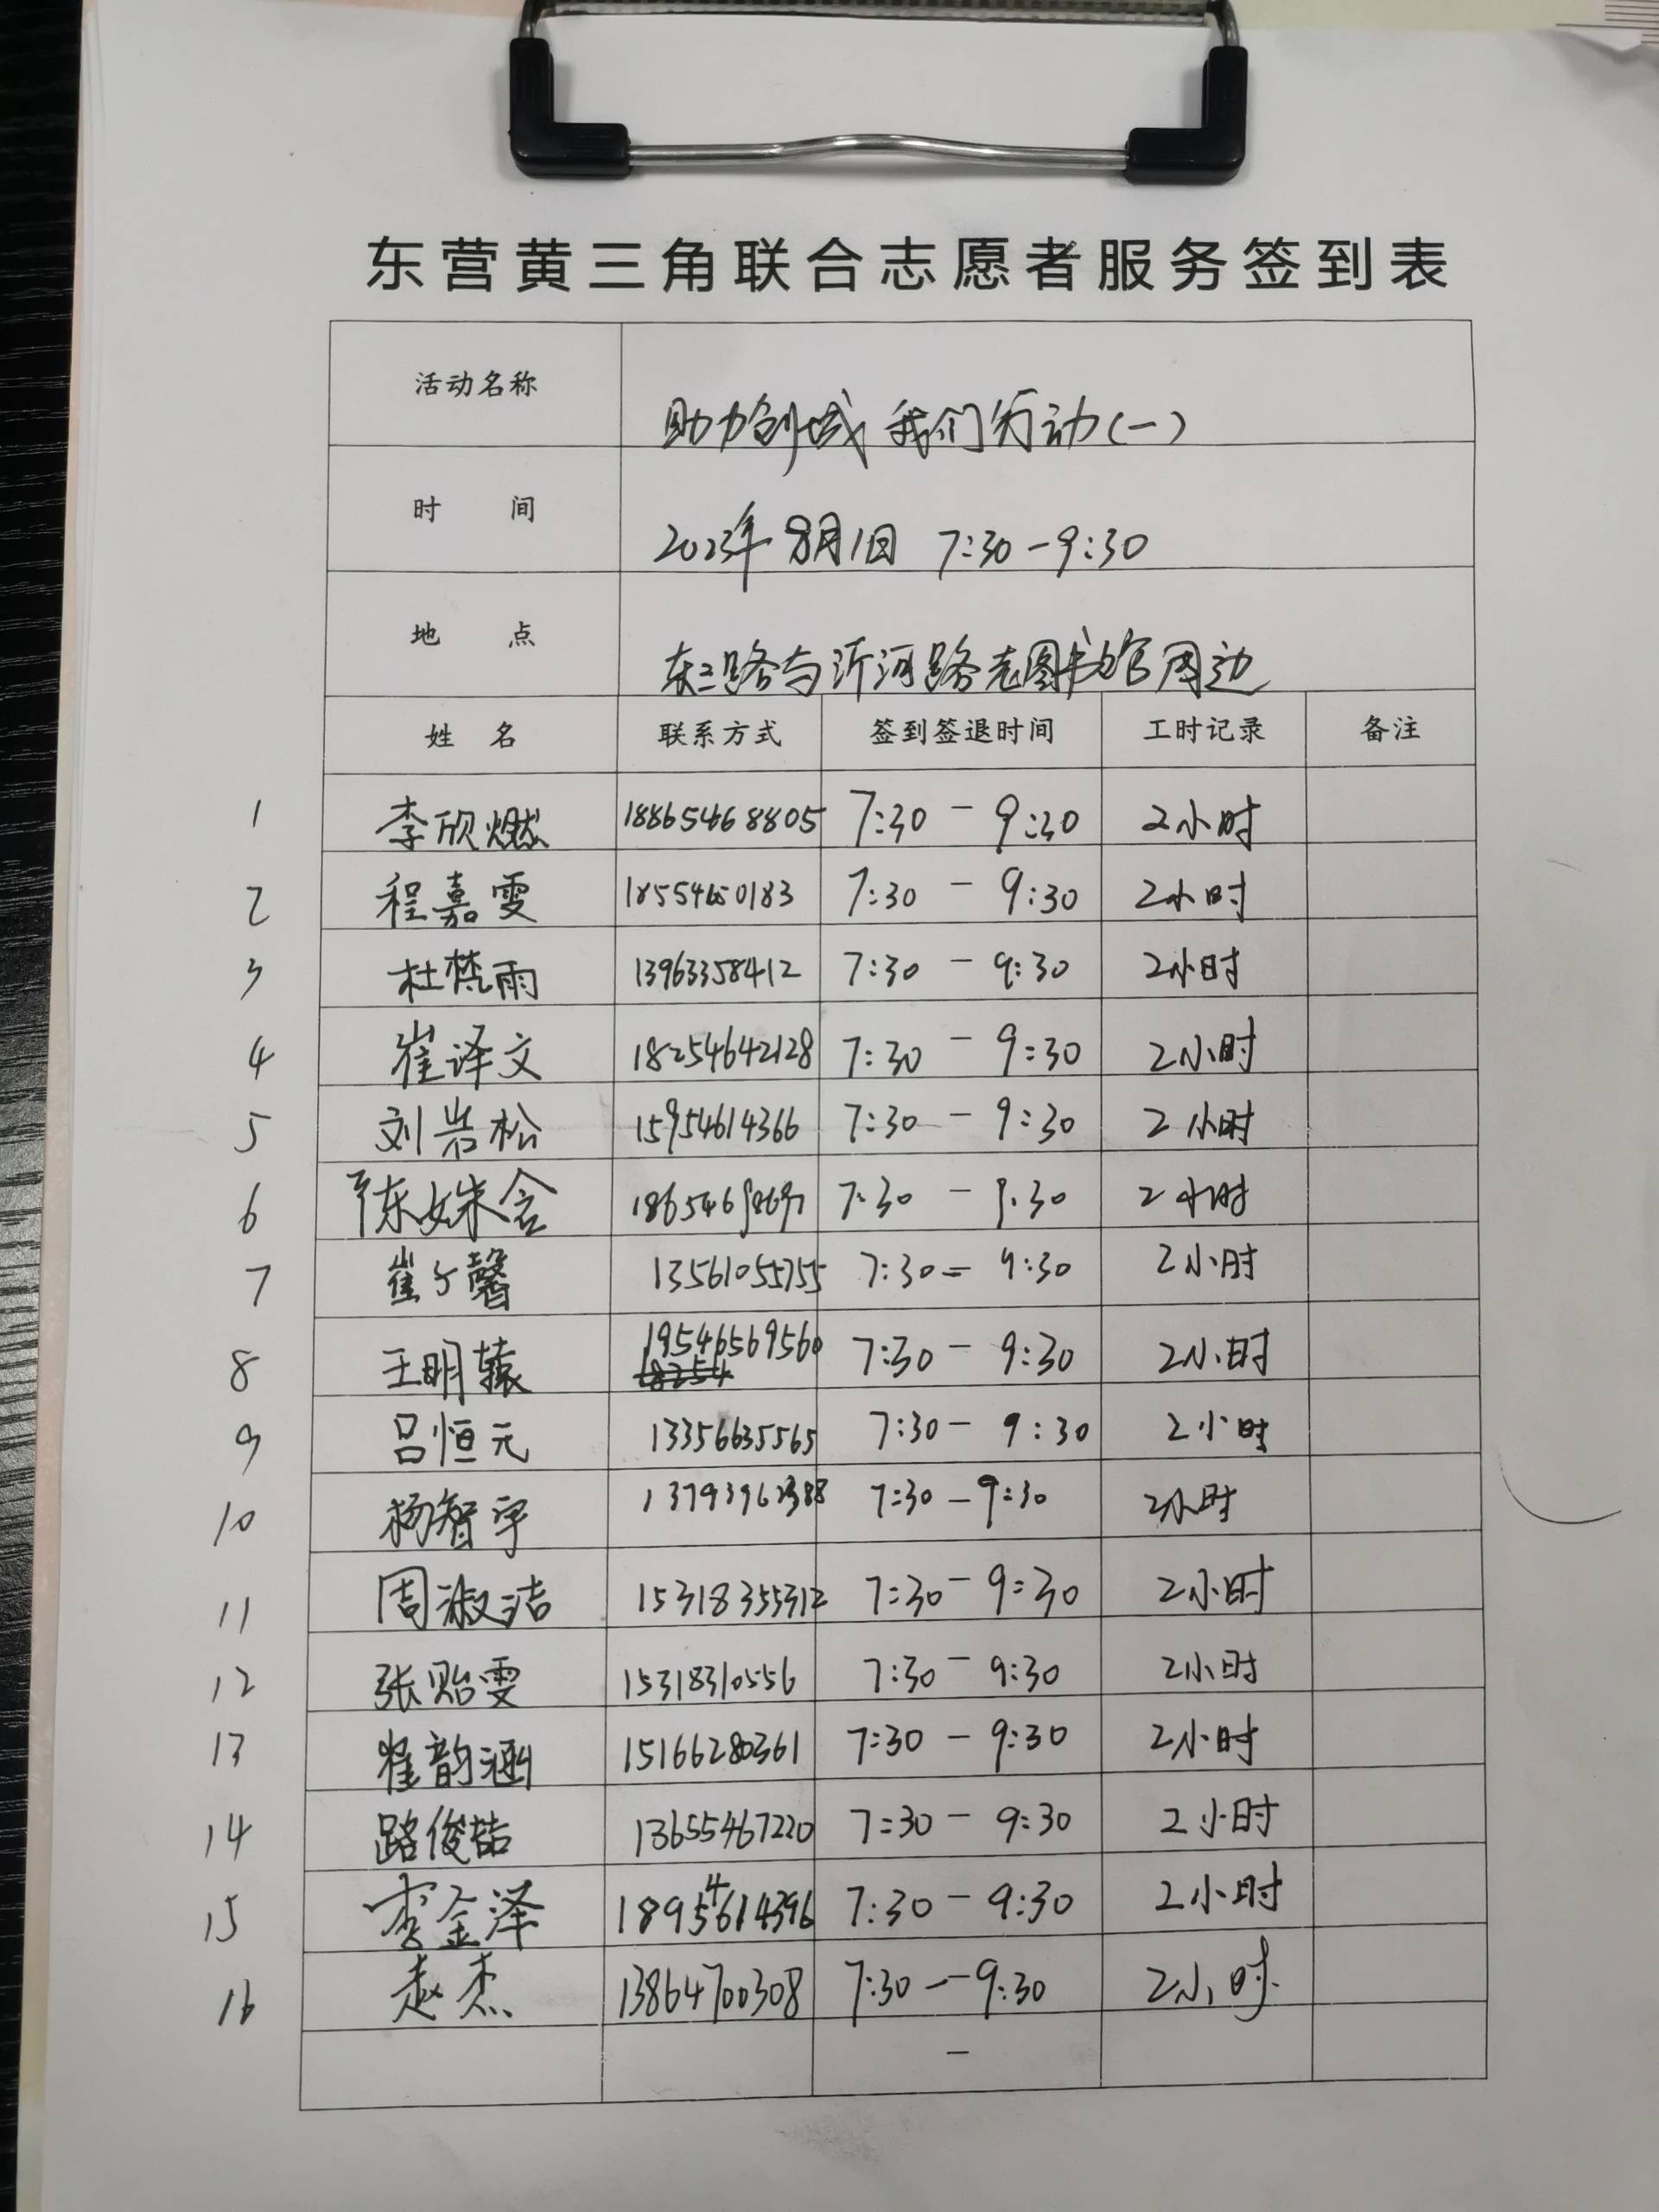 东营黄三角联合志愿者服务签到表
活动名称 助力创城 我们行动(一)
时 间 2023年8月1日 7:30-9:30
地 点 东三路与沂河路老图书馆周边
姓 名 联系方式 签到签退时间 工时记录 备注
1 李欣燃 18865468805 7:30 - 9:30 2小时
2 程嘉雯 18554650183 7:30 - 9:30 2小时
3 杜梵雨 13963358412 7:30 - 9:30 2小时
4 崔译文 18254642128 7:30 - 9:30 2小时
5 刘岩松 15954614366 7:30 - 9:30 2小时
6 陈姝含 7:30 - 9:30 2小时
7 13561055755 7:30 - 9:30 2小时
8 王明辕 19546569560 7:30 - 9:30 2小时
18254
9 吕恒元 13356635565 7:30 - 9:30 2小时
10 杨智宇 7:30 - 9:30 2小时
11 周淑洁 15318355312 7:30 - 9:30 2小时
12 张贻雯 15318310556 7:30 - 9:30 2小时
13 崔韵涵 15166280361 7:30 - 9:30 2小时
14 路俊喆 13655467220 7:30 - 9:30 2小时
15 李金泽 7:30 - 9:30 2小时
16 赵杰 13864700308 7:30 - 9:30 2小时
-